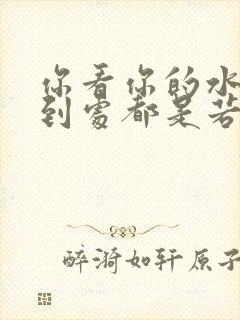 你看你的水
到处都是若
醉漪如轩原子